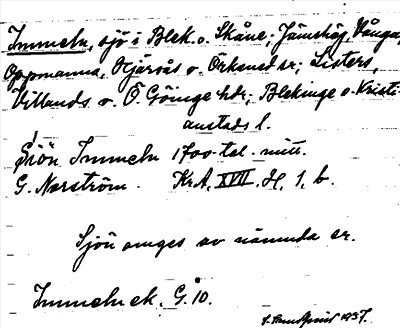 Immeln, sjö i Blek. o. Skåne; Jämshög, Vånga,
Oppmanna, Hjärsås o. Örkened sr; Listers,
Villands o. Ö. Göinge hdr; Blekinge o. Kristi-
anstads l.
Sjön Immeln 1700-tal. mitt.
G. Norström. KrA, XVII. H, 1, b.
Sjön omges av nämnda sr.
Immeln ek. G. 10.
1937.